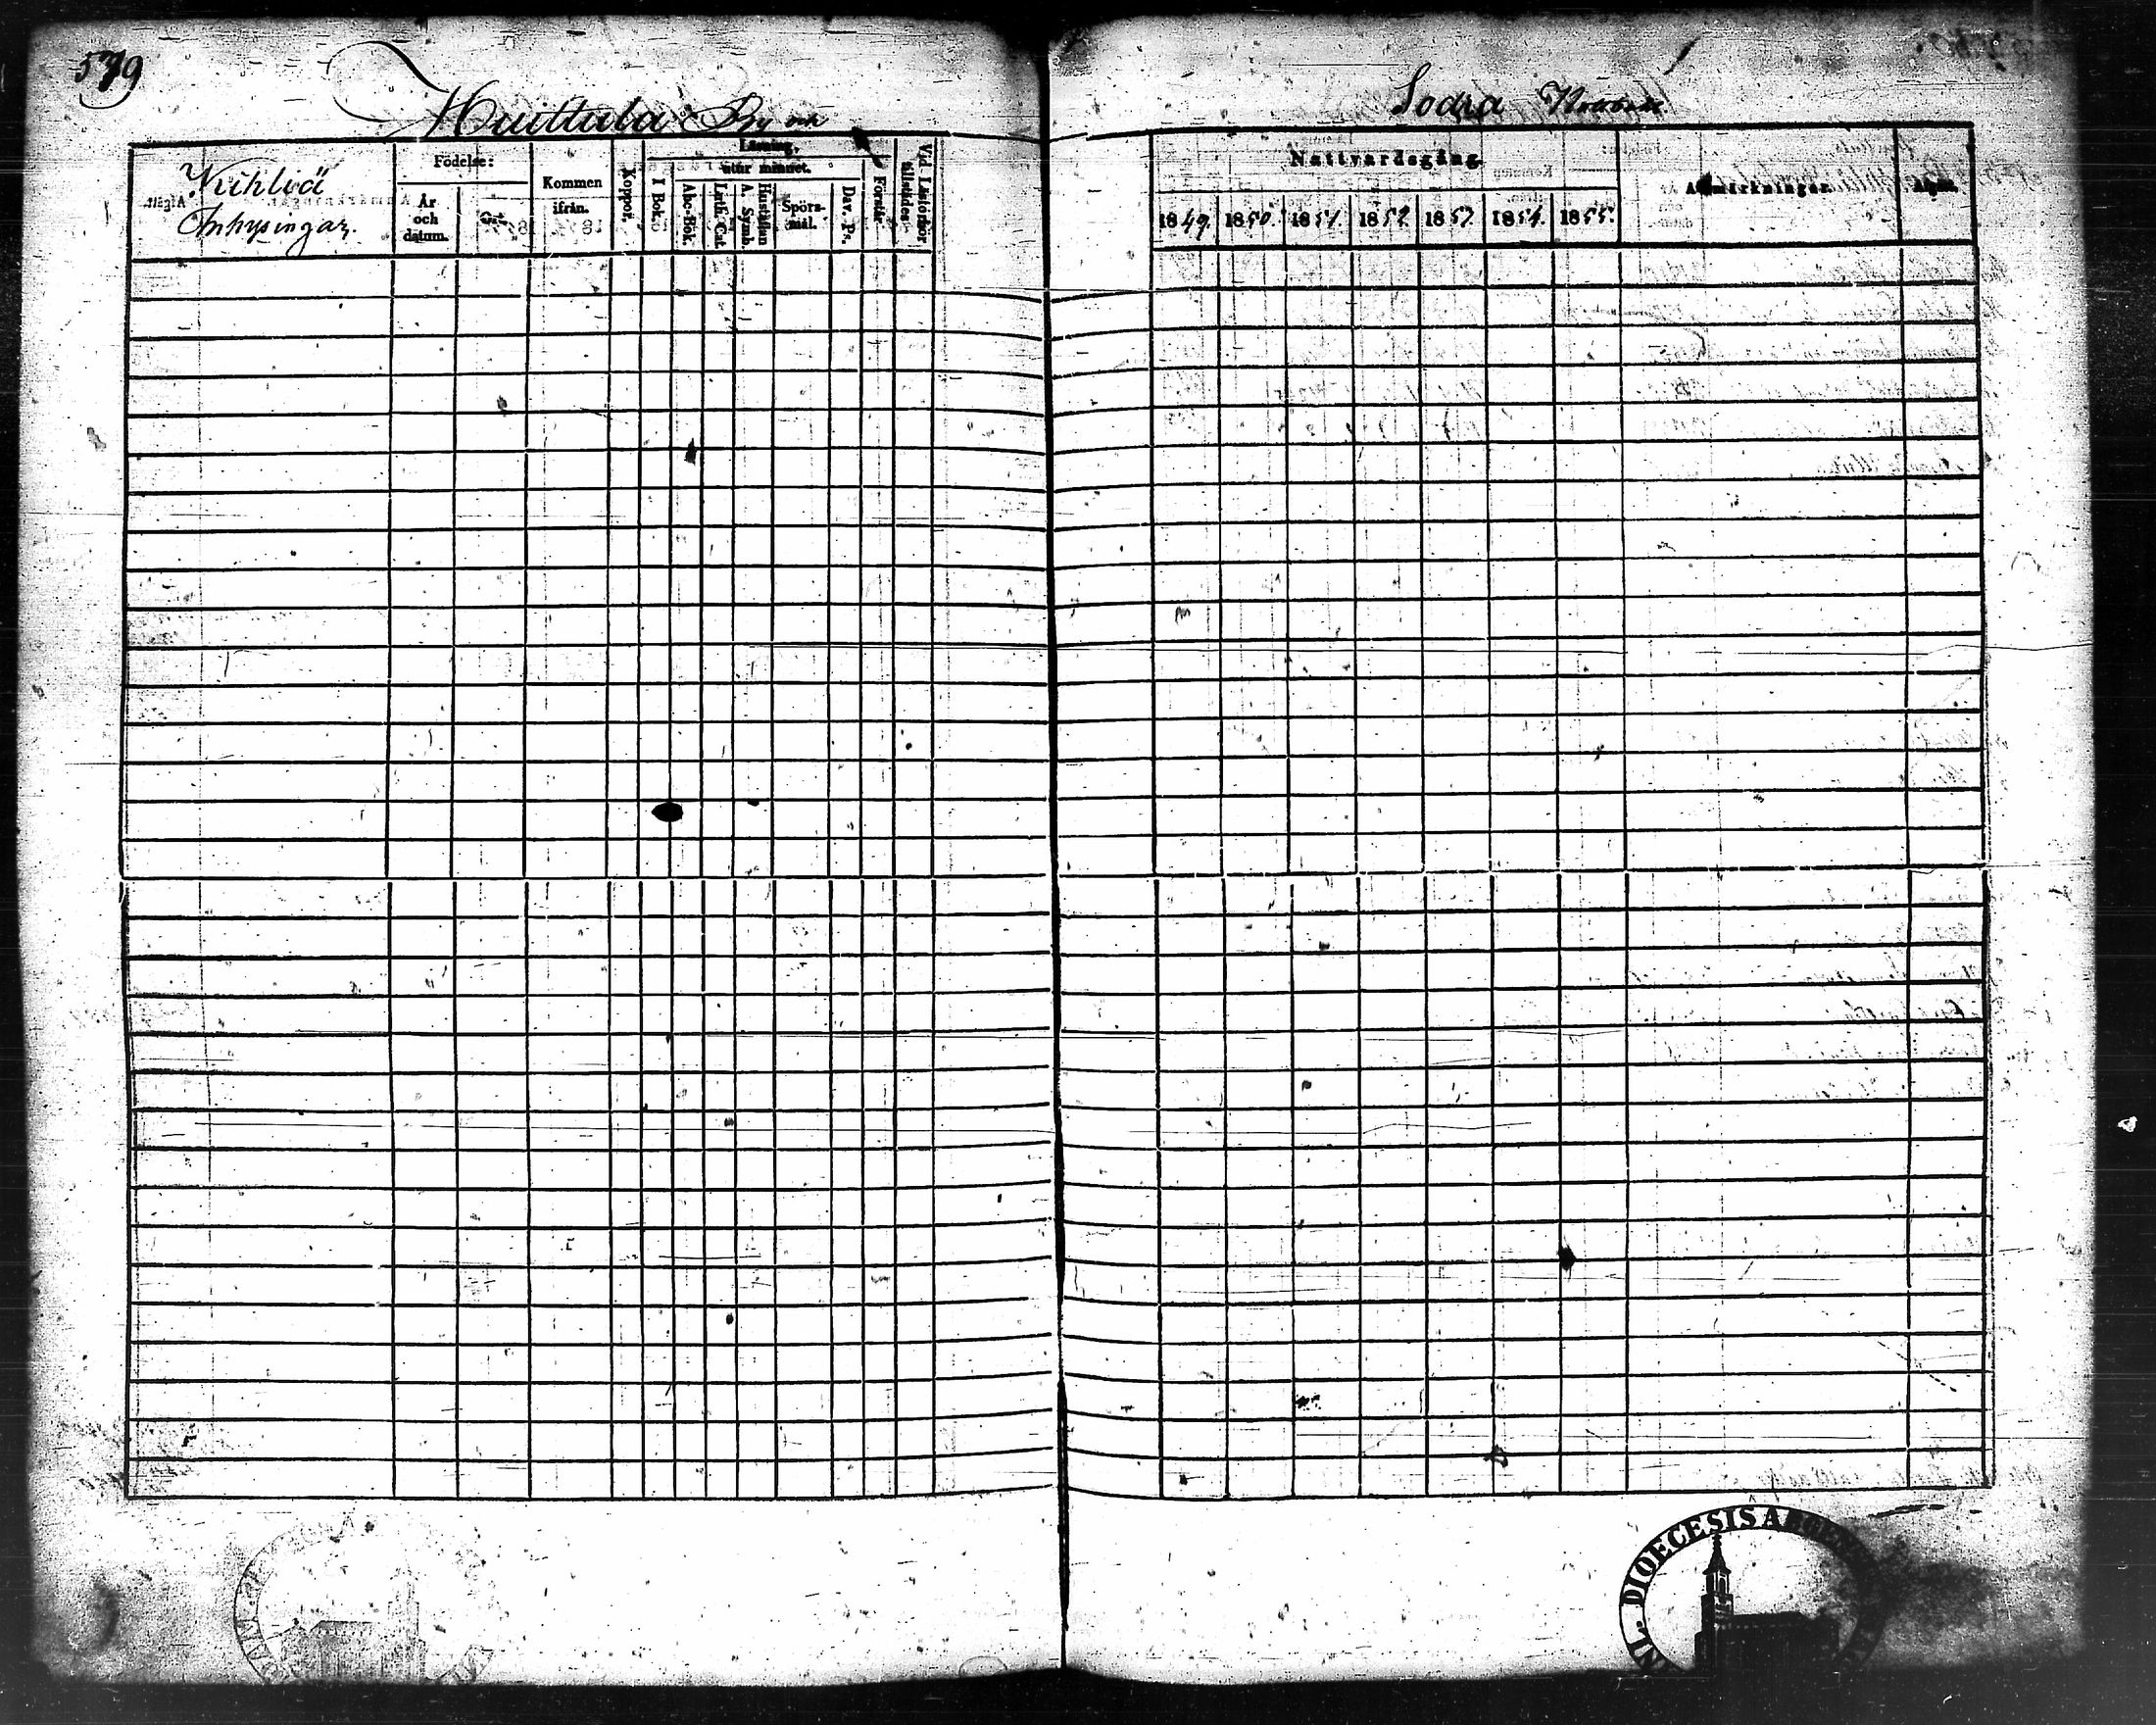 579
Huittula By och
Södra
Wichliä
Inhysingar.
Födelse:
År och datum.
Ort.
Kommen ifrån.
Koppor.
Läsning,
utur minnet.
I Bok.
Abc-Bok.
Luth. Cat.
Hustaflan A. Symb.
Spörs-mål.
Dav. Ps.
Förstår
Vid Läsförhör tillstädes
Nattvardsgång.
1849. 1850. 1851. 1852. 1853 1854. 1855.
Anmärkningar.
Afgått.
DIOECESIS ABOENSIS